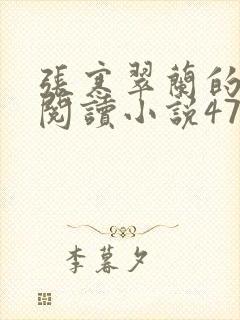 張寒翠蘭的
閱讀小説47
李暮夕